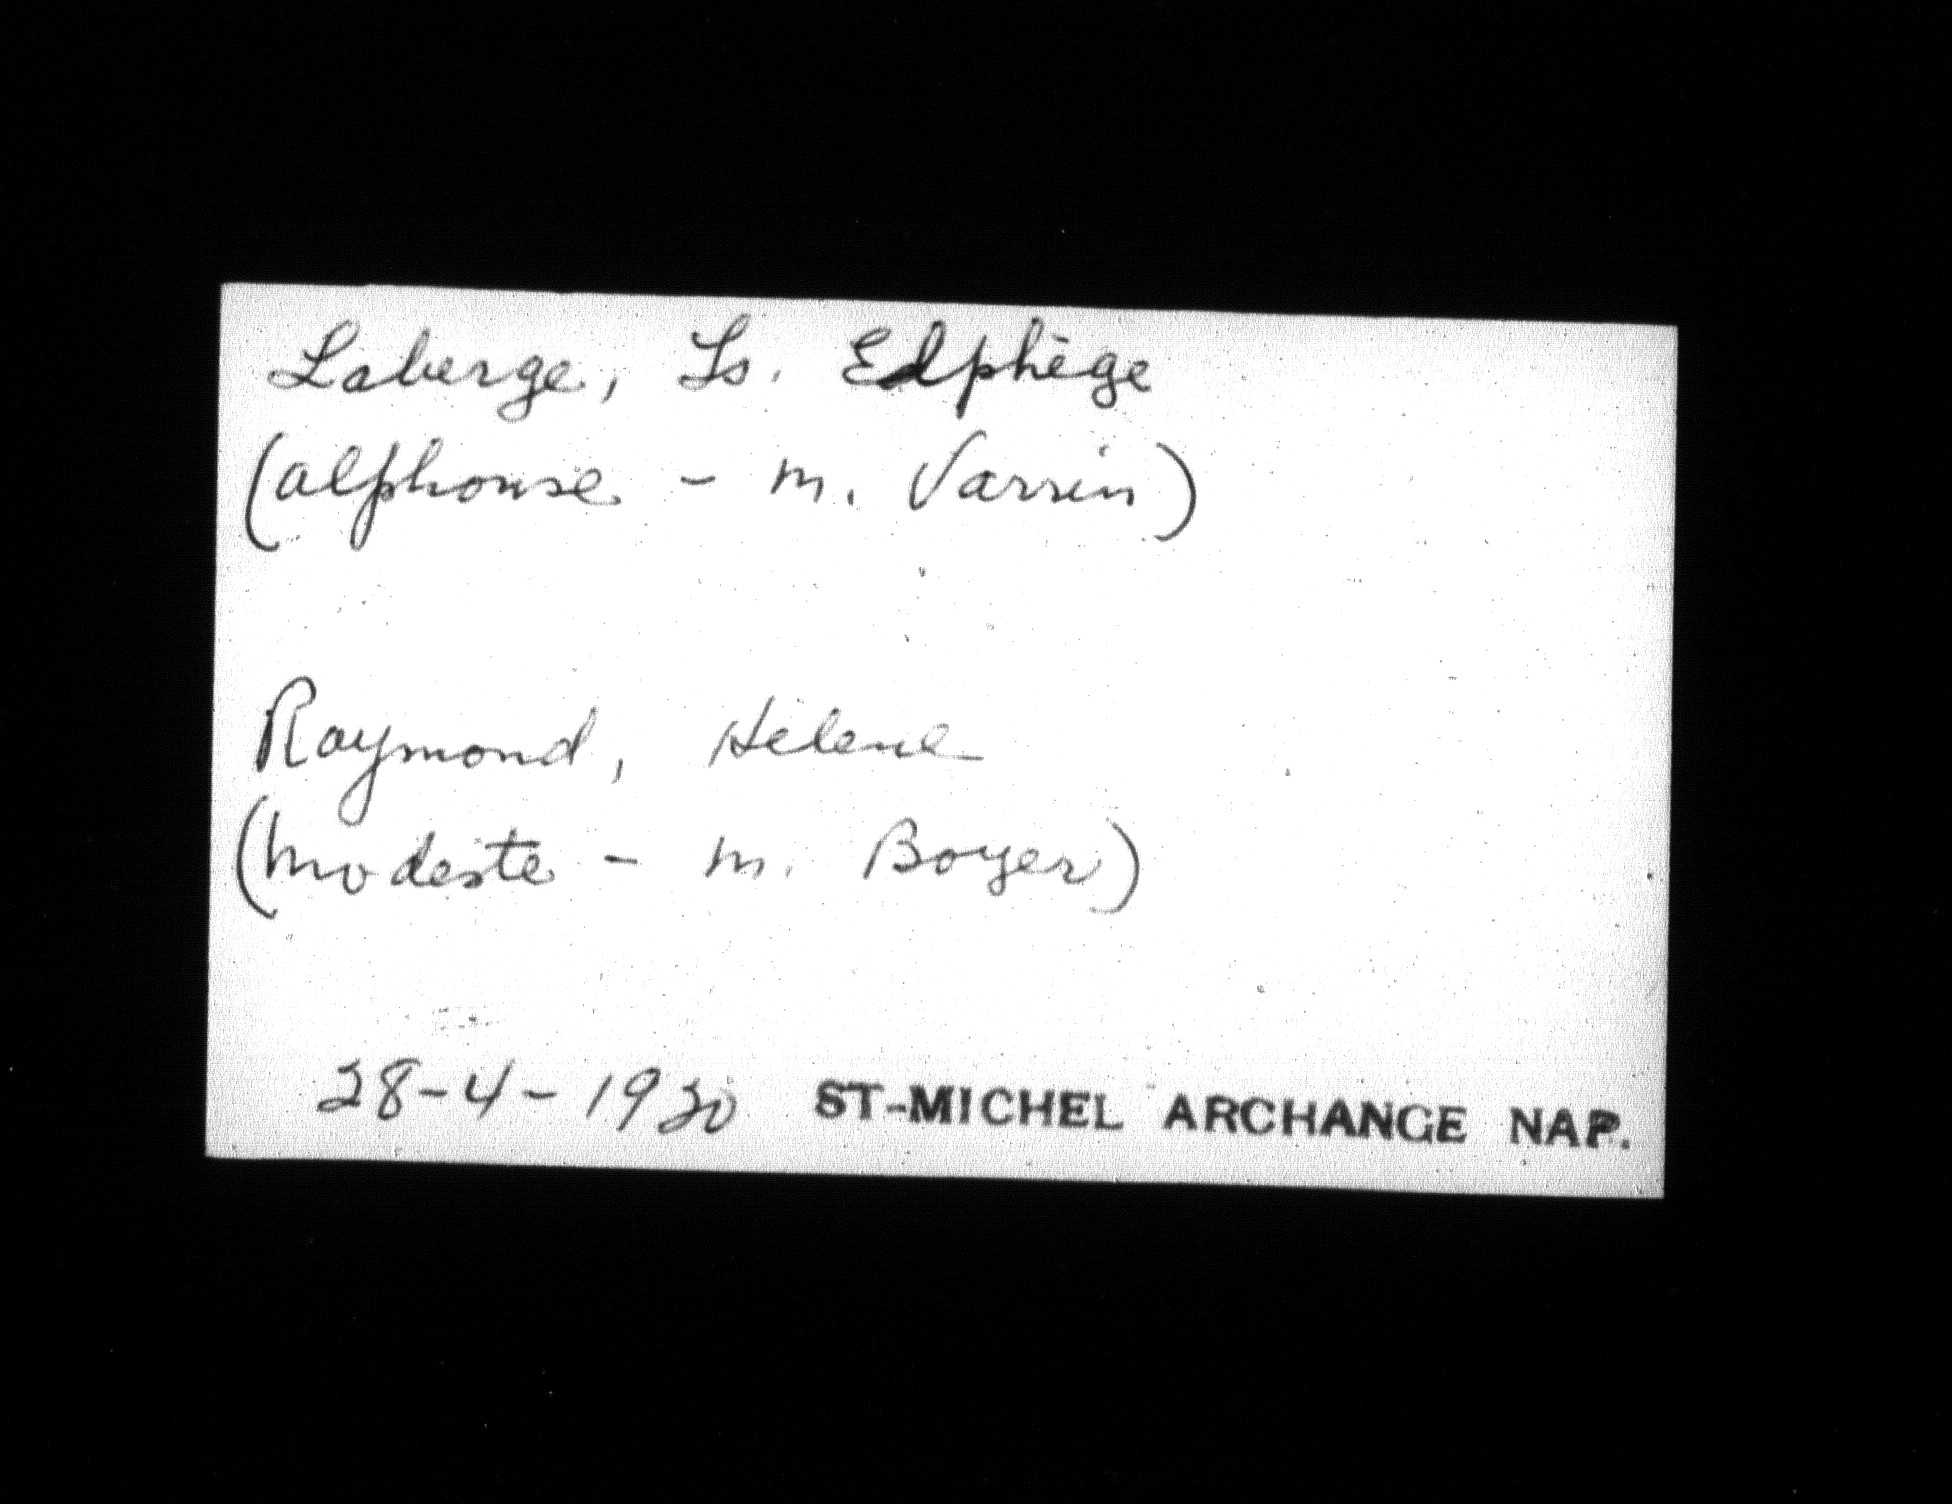 Laberge, Ls. Edphège
(Alphonse - m. Varrin)
Raymond, Hélène
(Modeste - m. Boyer)
28-4-1920 ST-MICHEL ARCHANGE NAP.